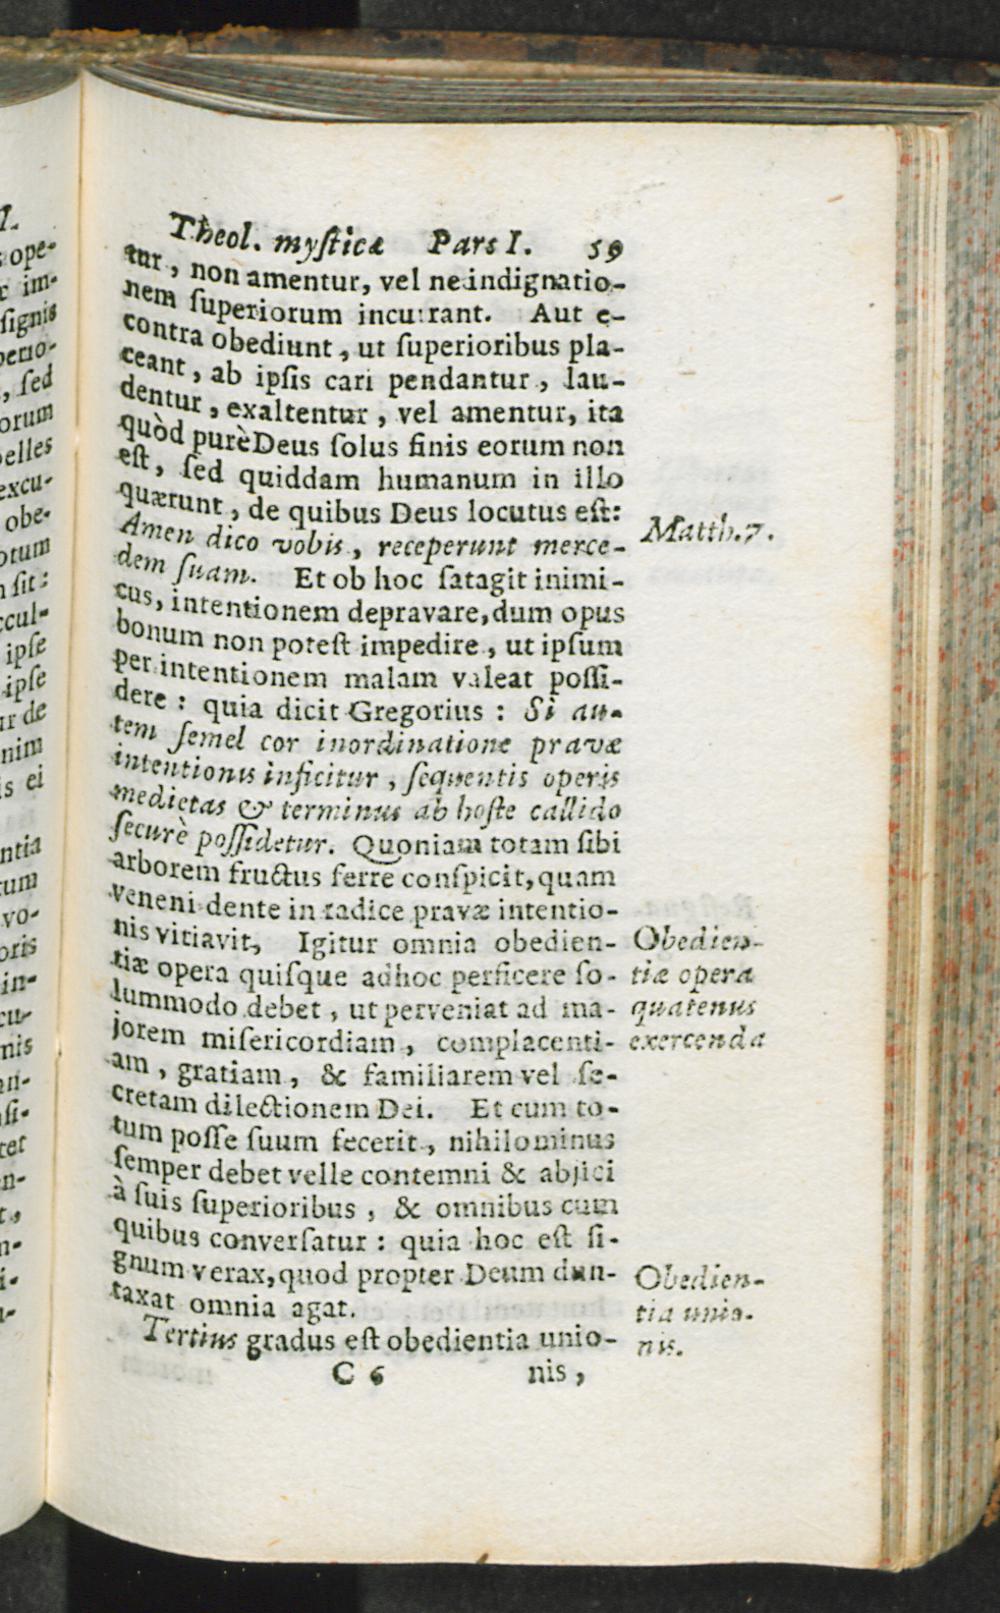 Theol. mysticæ Pars I. 59
tur, non amentur, vel ne indignatio-
nem ſuperiorum incurrant. Aut e-
contra obediunt, ut ſuperioribus pla-
ceant, ab ipſis cari pendantur, lau-
dentur, exaltentur, vel amentur, ita
quòd purè Deus ſolus finis eorum non
eſt, ſed quiddam humanum in illo
quærunt, de quibus Deus locutus eſt:
Amen dico vobis, receperunt merce-
Matth. 7.
dem ſuam. Et ob hoc ſatagit inimi-
cus, intentionem depravare, dum opus
bonum non poteſt impedire, ut ipſum
per intentionem malam valeat poſſi-
dere: quia dicit Gregorius: Si au-
tem ſemel cor inordinatione pravæ
intentionis inficitur, ſequentis operis
medietas & terminus ab hoſte callido
ſecurè poſſidetur. Quoniam totam ſibi
arborem fructus ferre conſpicit, quam
veneni dente in radice pravæ intentio-
nis vitiavit, Igitur omnia obedien-
tiæ opera quiſque adhoc perficere ſo-
lummodo debet, ut perveniat ad ma-
jorem miſericordiam, complacenti-
am, gratiam, & familiarem vel ſe-
cretam dilectionem Dei. Et cum to-
tum poſſe ſuum fecerit, nihilominus
ſemper debet velle contemni & abjici
à ſuis ſuperioribus, & omnibus cum
quibus converſatur: quia hoc eſt ſi-
gnum verax, quod propter Deum dun-
taxat omnia agat.
Obedien-
tiæ opera
quatenus
exercenda
Tertius gradus eſt obedientia unio-
Obedien-
tia unio-
nis.
C 6 nis,
I.
ope-
im-
ſignis
ſed
orum
excu-
obe-
ſit:
ipſe
ipſe
de
ei